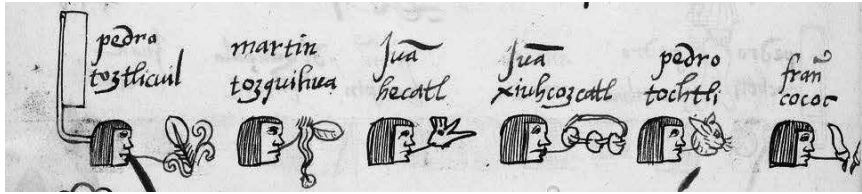 pedro
toztlicuil
martin
tozquihua
Juā
hecatl
Juā
xiuhcozcatl
pedro
tochtli
frañ
cococ